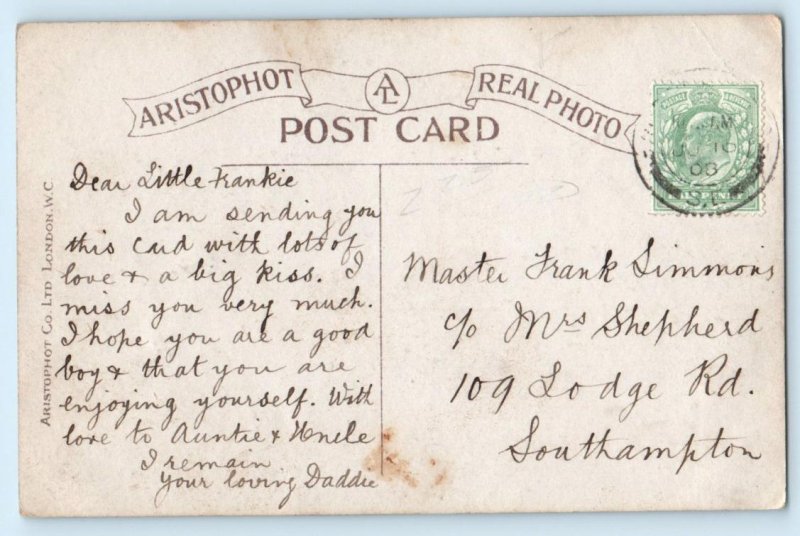 ARISTOPHOT
AL
REAL PHOTO
POST CARD
Dear Little Frankie
I am sending you
this Card with lots of
love & a big kiss. I
miss you very much.
I hope you are a good
boy & that you are
enjoying yourself. With
love to Auntie & Uncle
I remain
your loving Daddie
Master Frank Simmons
c/o Mrs Shepherd
109 Lodge Rd.
Southampton
ARISTOPHOT CO. LTD LONDON. W.C.
08